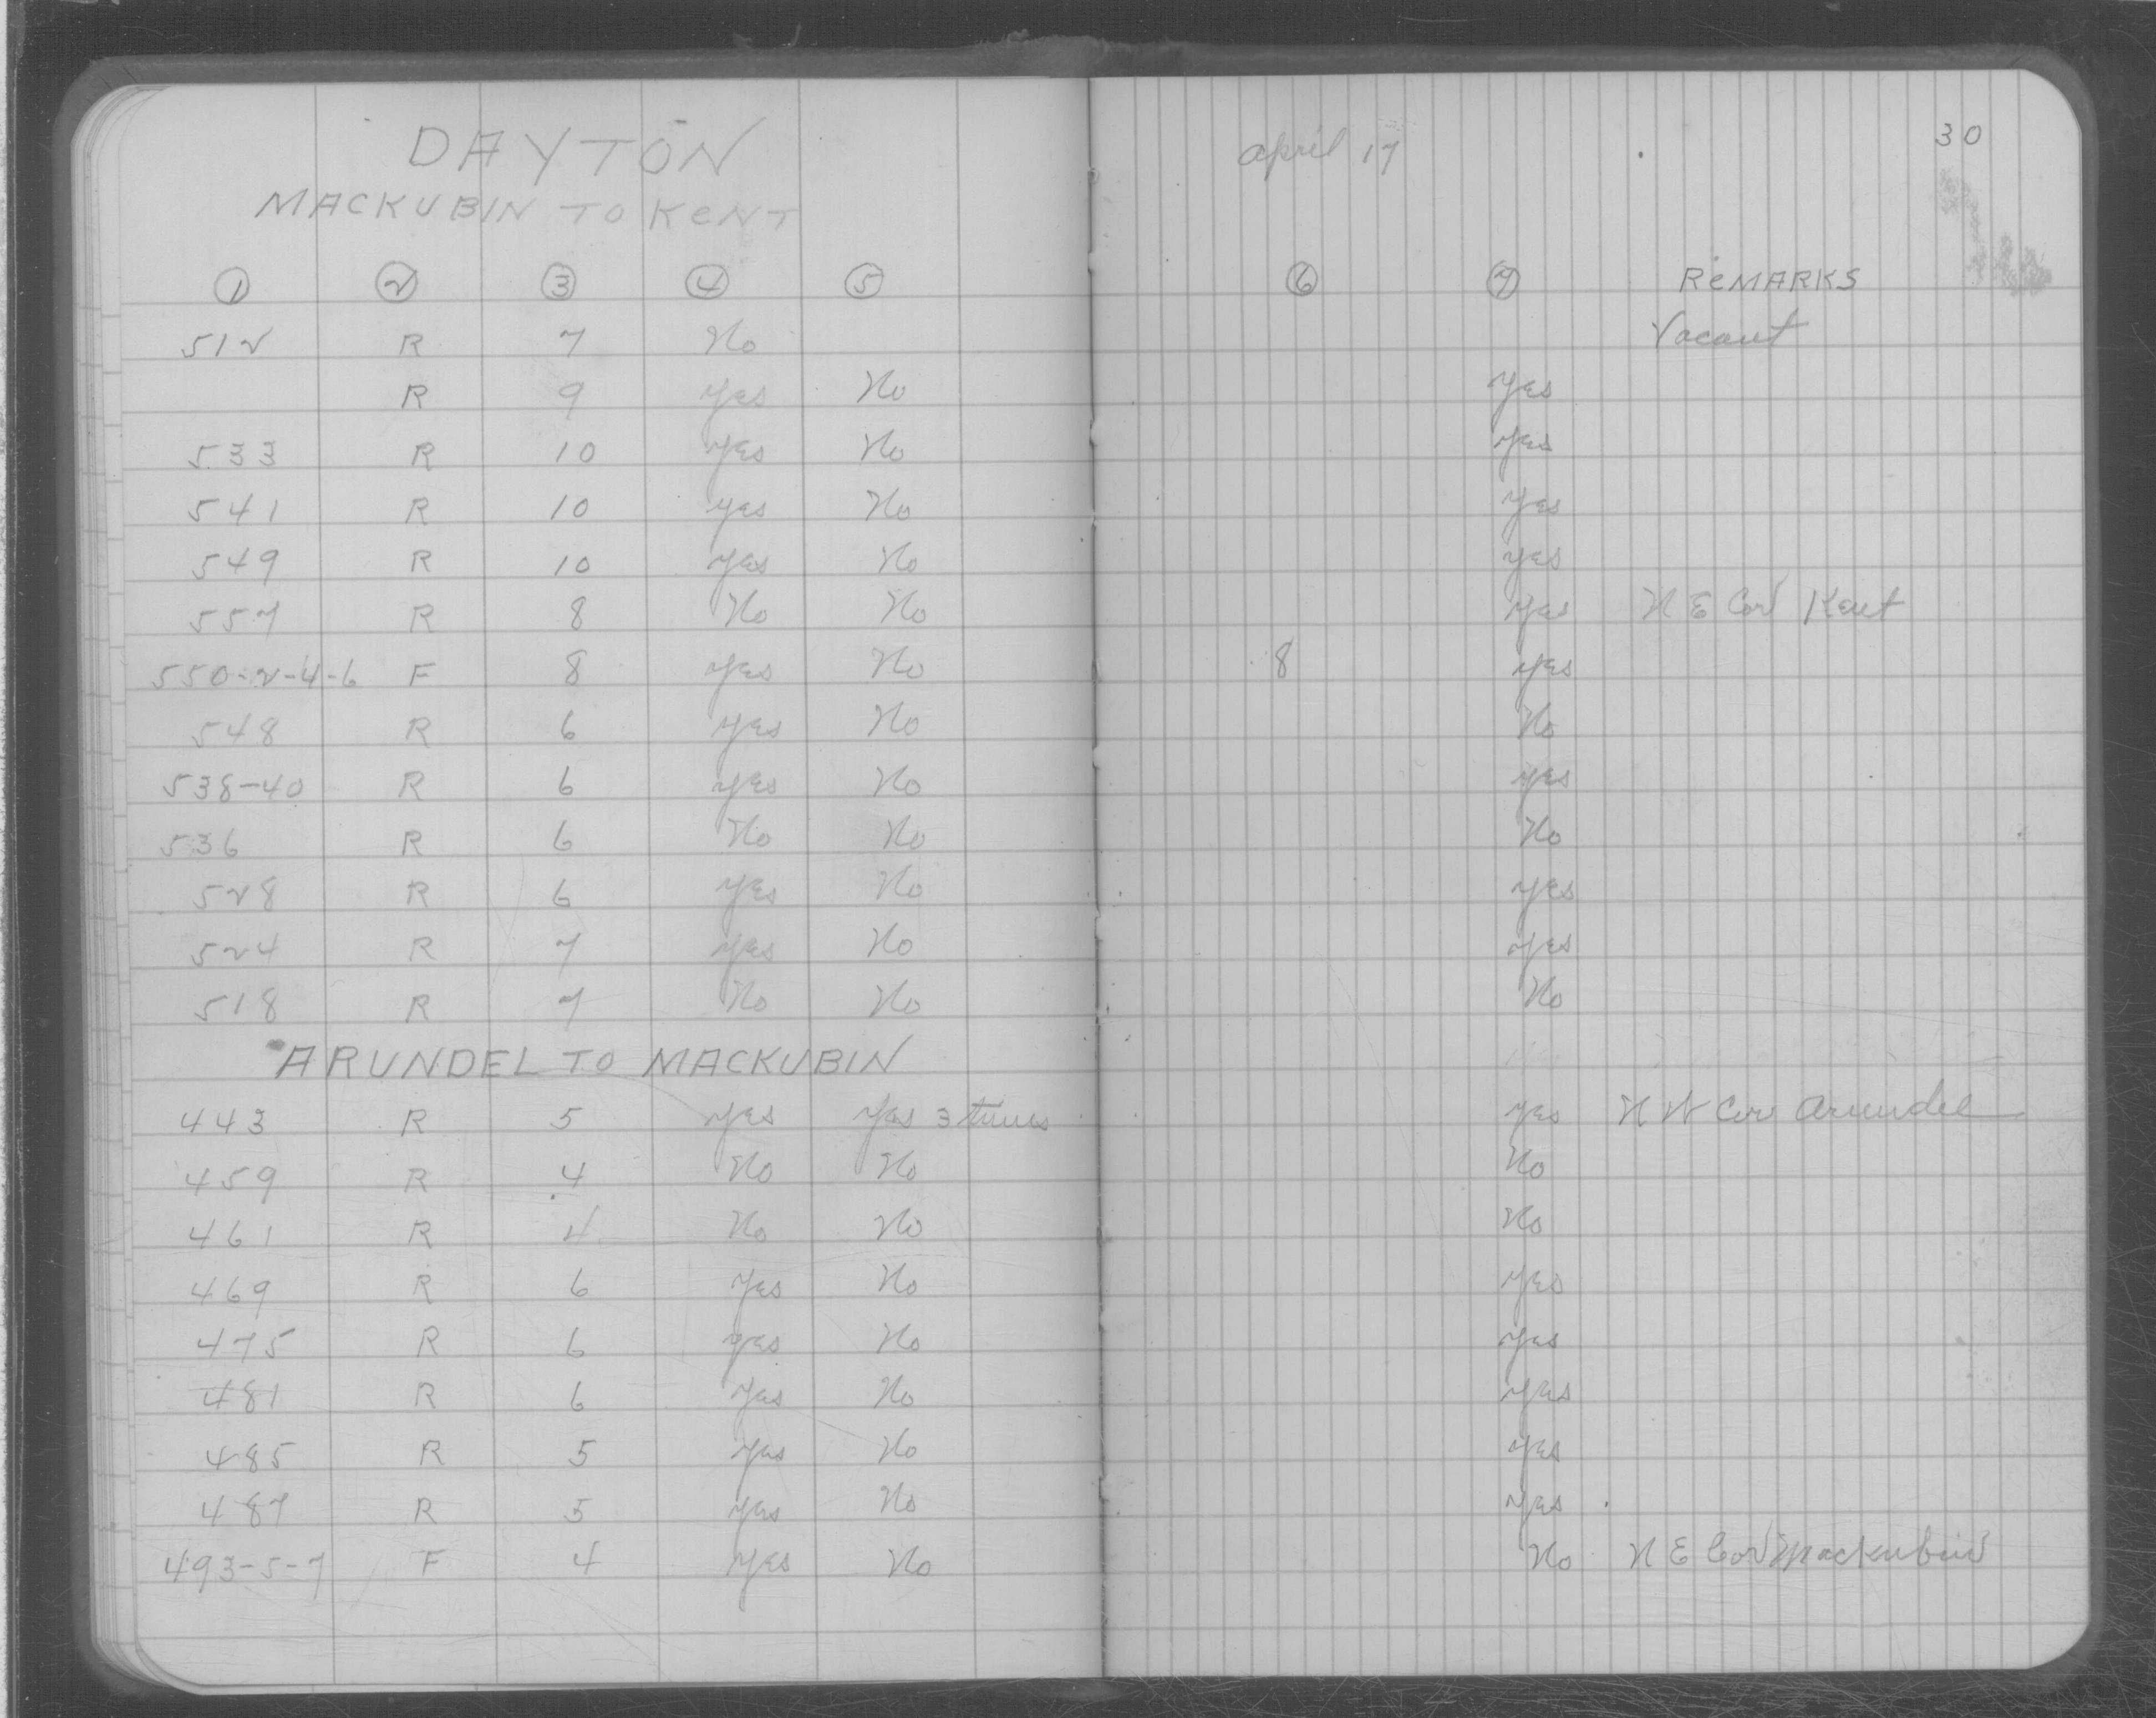 DAYTON april 17 30
MACKUBIN TO KENT
1 2 3 4 5 6 7 REMARKS
512 R 7 No Vacant
R 9 yes No yes
533 R 10 yes No yes
541 R 10 yes No yes
549 R 10 yes No yes
557 R 8 No No yes N E Cor Kent
550-2-4-6 F 8 yes No 8 yes
548 R 6 yes No No
538-40 R 6 yes No yes
536 R 6 No No No
528 R 6 yes No yes
524 R 7 yes No yes
518 R 7 No No No
ARUNDEL TO MACKUBIN
443 R 5 yes yes 3 times yes N W Cor Arundel
459 R 4 No No No
461 R 4 No No No
469 R 6 yes No yes
475 R 6 yes No yes
481 R 6 yes No yes
485 R 5 yes No yes
487 R 5 yes No yes
493-5-7 F 4 yes No No N E Cor Mackubin